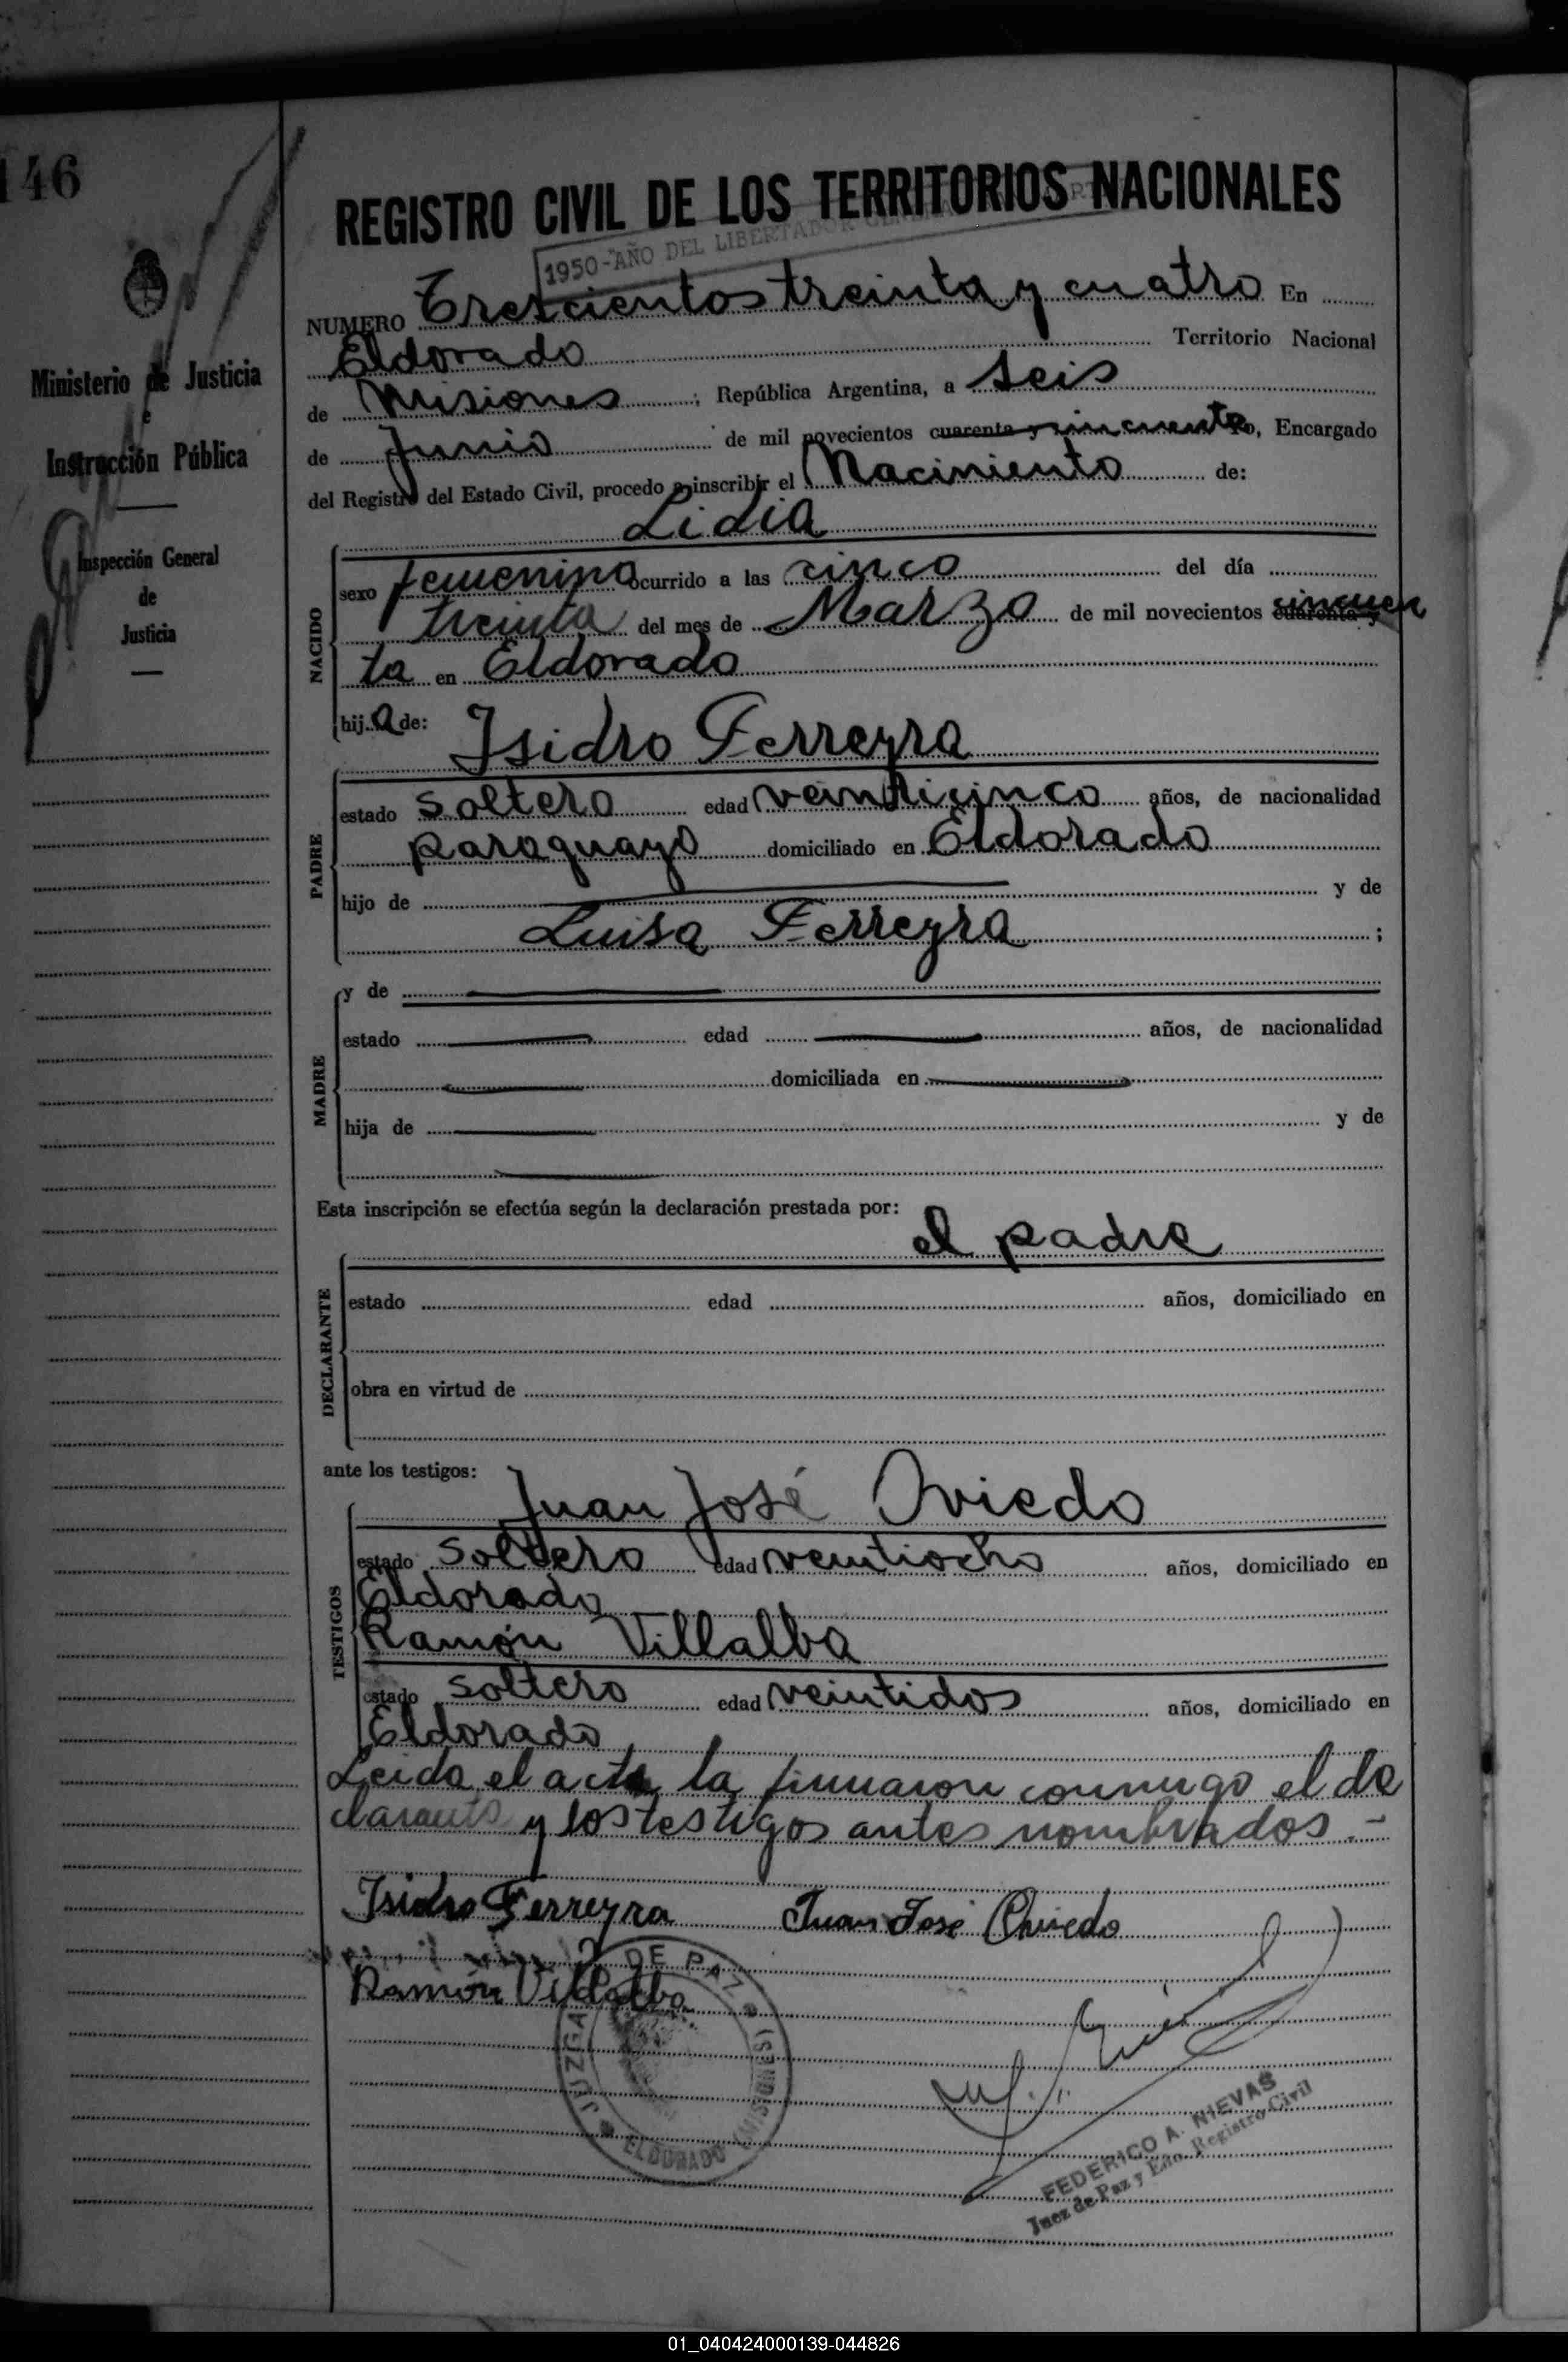 146
Ministerio de Justicia
e
Instrucción Pública
Inspección General
de
Justicia
REGISTRO CIVIL DE LOS TERRITORIOS NACIONALES
1950-AÑO DEL LIBERTADOR GENERAL
NUMERO Trescientos treinta y cuatro En
Eldorado Territorio Nacional
de Misiones; República Argentina, a seis
de Junio de mil novecientos cuarenta y cincuenta, Yo, Encargado
del Registro del Estado Civil, procedo a inscribir el Nacimiento de:
Lidia
NACIDO
sexo femenino ocurrido a las cinco del día
treinta del mes de Marzo de mil novecientos cuarenta y cincuen
ta en Eldorado
hija de:
Isidro Ferreyra
PADRE
estado soltero edad veinticinco años, de nacionalidad
paraguayo domiciliado en Eldorado
hijo de y de
Luisa Ferreyra ;
MADRE
y de
estado edad años, de nacionalidad
domiciliada en
hija de y de
Esta inscripción se efectúa según la declaración prestada por:
el padre
DECLARANTE
estado edad años, domiciliado en
obra en virtud de
ante los testigos:
Juan José Oviedo
TESTIGOS
estado soltero edad veintiocho años, domiciliado en
Eldorado
Ramón Villalba
estado soltero edad veintidos años, domiciliado en
Eldorado
Leida el acta la firmaron conmigo el de
clarante y los testigos antes nombrados.-
Isidro Ferreyra Juan José Oviedo
Ramón Villalba
JUZGADO DE PAZ
ELDORADO (MISIONES)
FEDERICO A. NIEVAS
Juez de Paz y Edo. Registro Civil
01_040424000139-044826